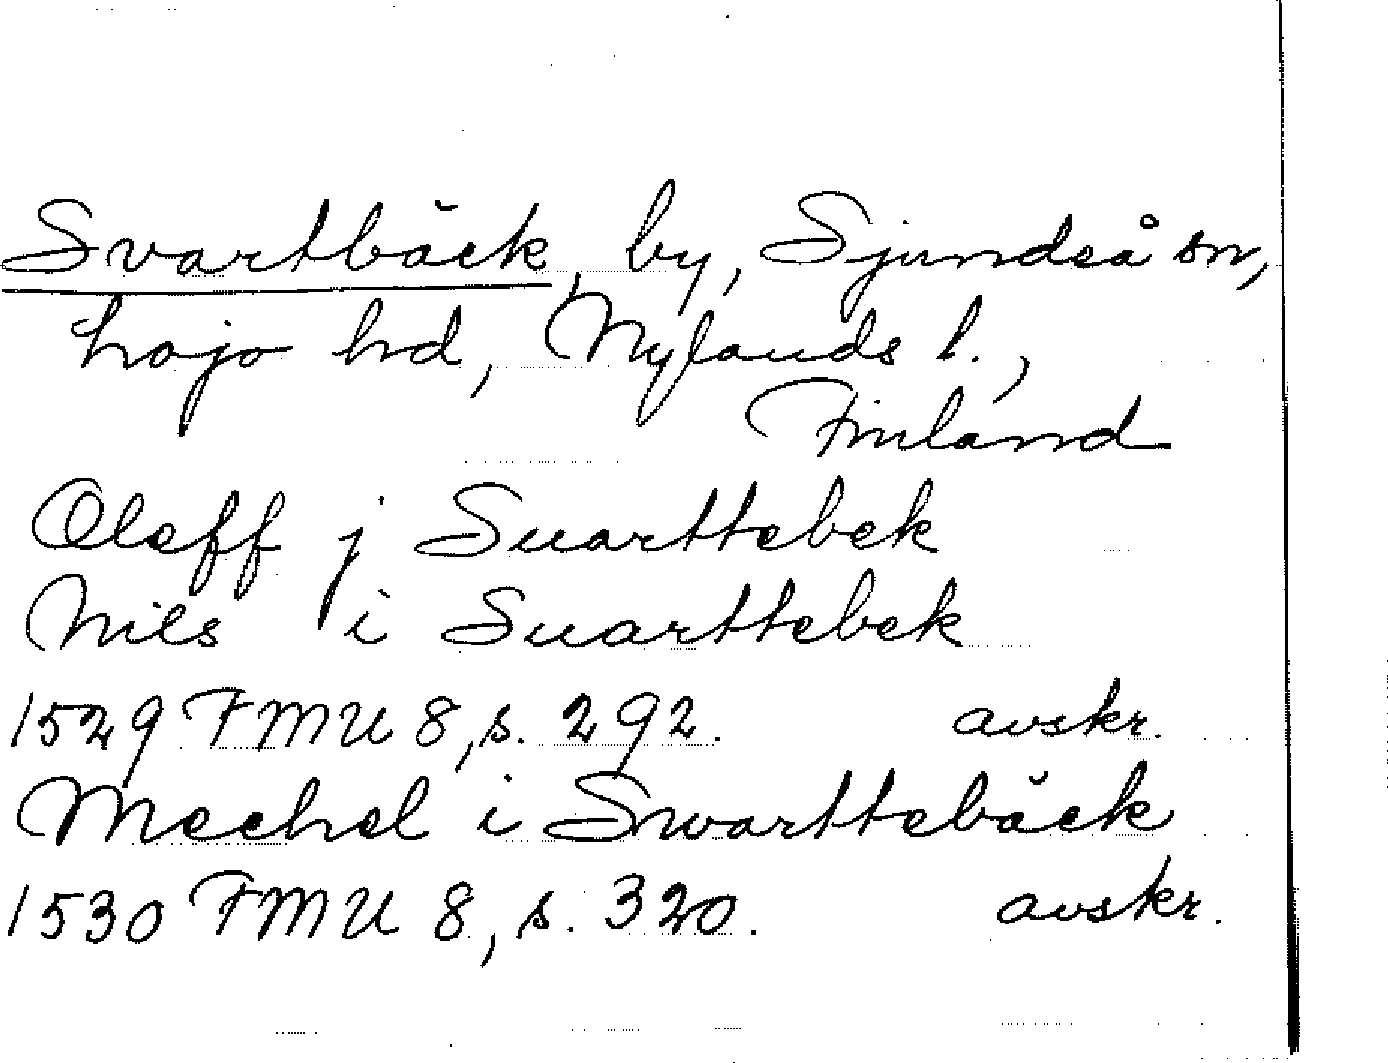 Svartbäck, by, Sjundeå sn,
Lojo hd, Nylands l.,
Finland
Oleff j Suarttebek
Nils i Suarttebek
1529 FMU 8, s. 292. avskr.
Mechel i Swarttebäck
1530 FMU 8, s. 320. avskr.